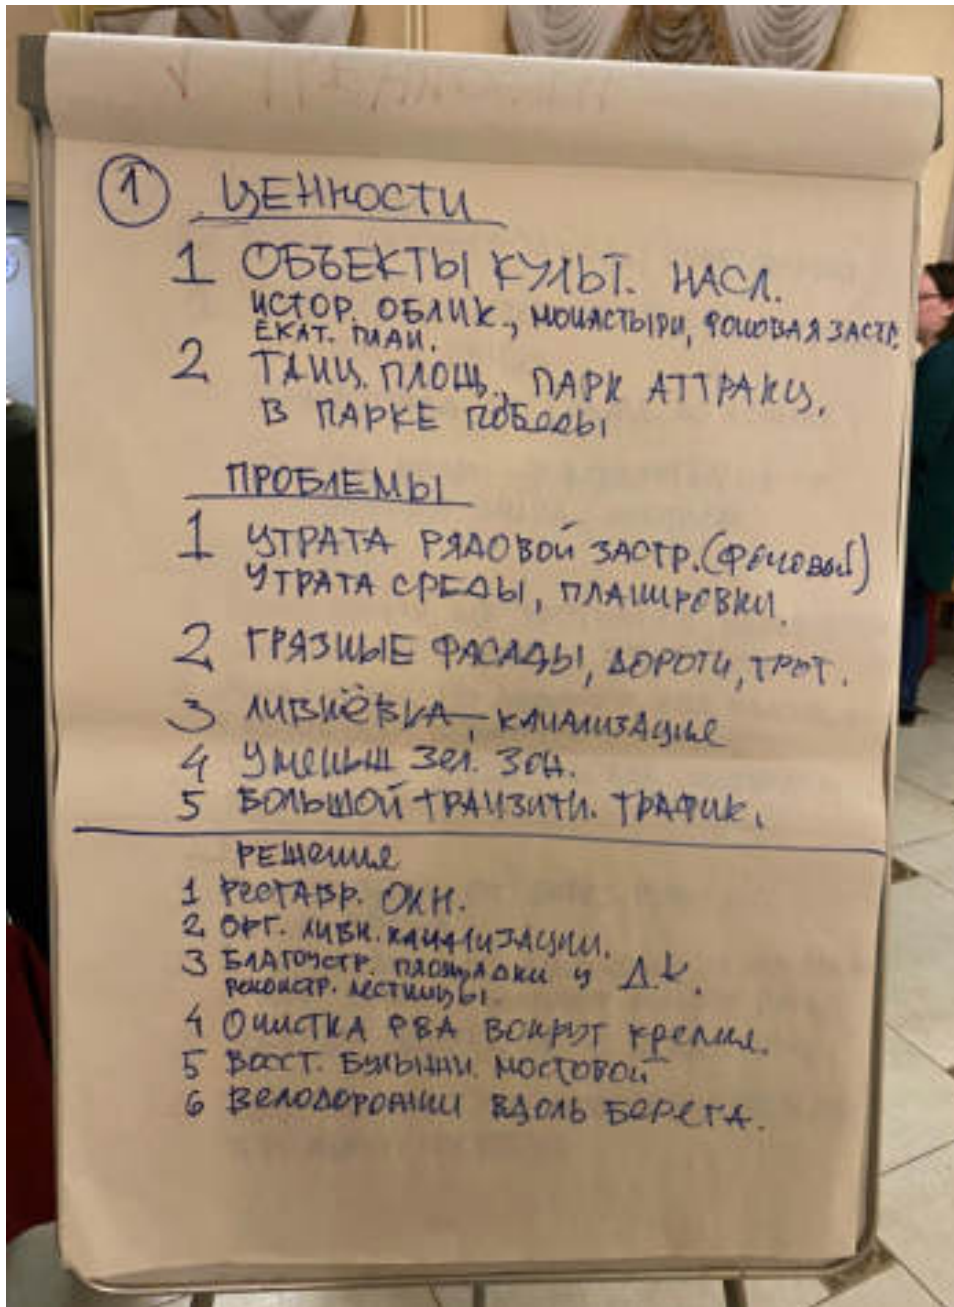 ① ЦЕННОСТИ
1 ОБЪЕКТЫ КУЛЬТ. НАСЛ.
ИСТОР. ОБЛИК., МОНАСТЫРИ, ФОНОВАЯ ЗАСТР.
ЕКАТ. ПЛАН.
2 ТАНЦ. ПЛОЩ., ПАРК АТТРАКЦ.
В ПАРКЕ ПОБЕДЫ
ПРОБЛЕМЫ
1 УТРАТА РЯДОВОЙ ЗАСТР. (ФОНОВОЙ)
УТРАТА СРЕДЫ, ПЛАНИРОВКИ.
2 ГРЯЗНЫЕ ФАСАДЫ, ДОРОГИ, ТРОТ.
3 ЛИВНЁВКА, КАНАЛИЗАЦИЯ
4 УМЕНЬШ ЗЕЛ. ЗОН.
5 БОЛЬШОЙ ТРАНЗИТН. ТРАФИК.
РЕШЕНИЯ
1 РЕСТАВР. ОКН.
2 ОРГ. ЛИВН. КАНАЛИЗАЦИИ.
3 БЛАГОУСТР. ПЛОЩАДКИ У Д.К.
РЕКОНСТР. ЛЕСТНИЦЫ.
4 ОЧИСТКА РВА ВОКРУГ КРЕМЛЯ.
5 ВОССТ. БУЛЫЖН. МОСТОВОЙ
6 ВЕЛОДОРОЖКИ ВДОЛЬ БЕРЕГА.